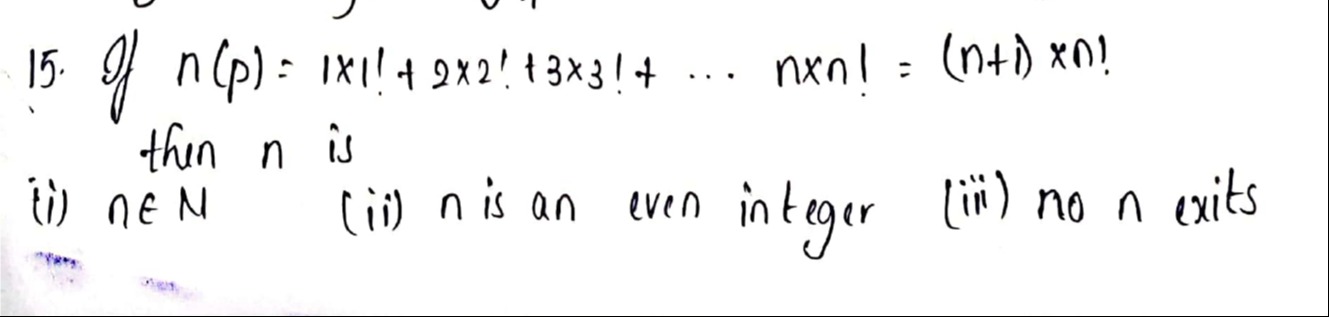 15. If n(p) = 1×1! + 2×2! + 3×3! + ... n×n! = (n+1) ×n!
then n is
(i) n∈N (ii) n is an even integer (iii) no n exits